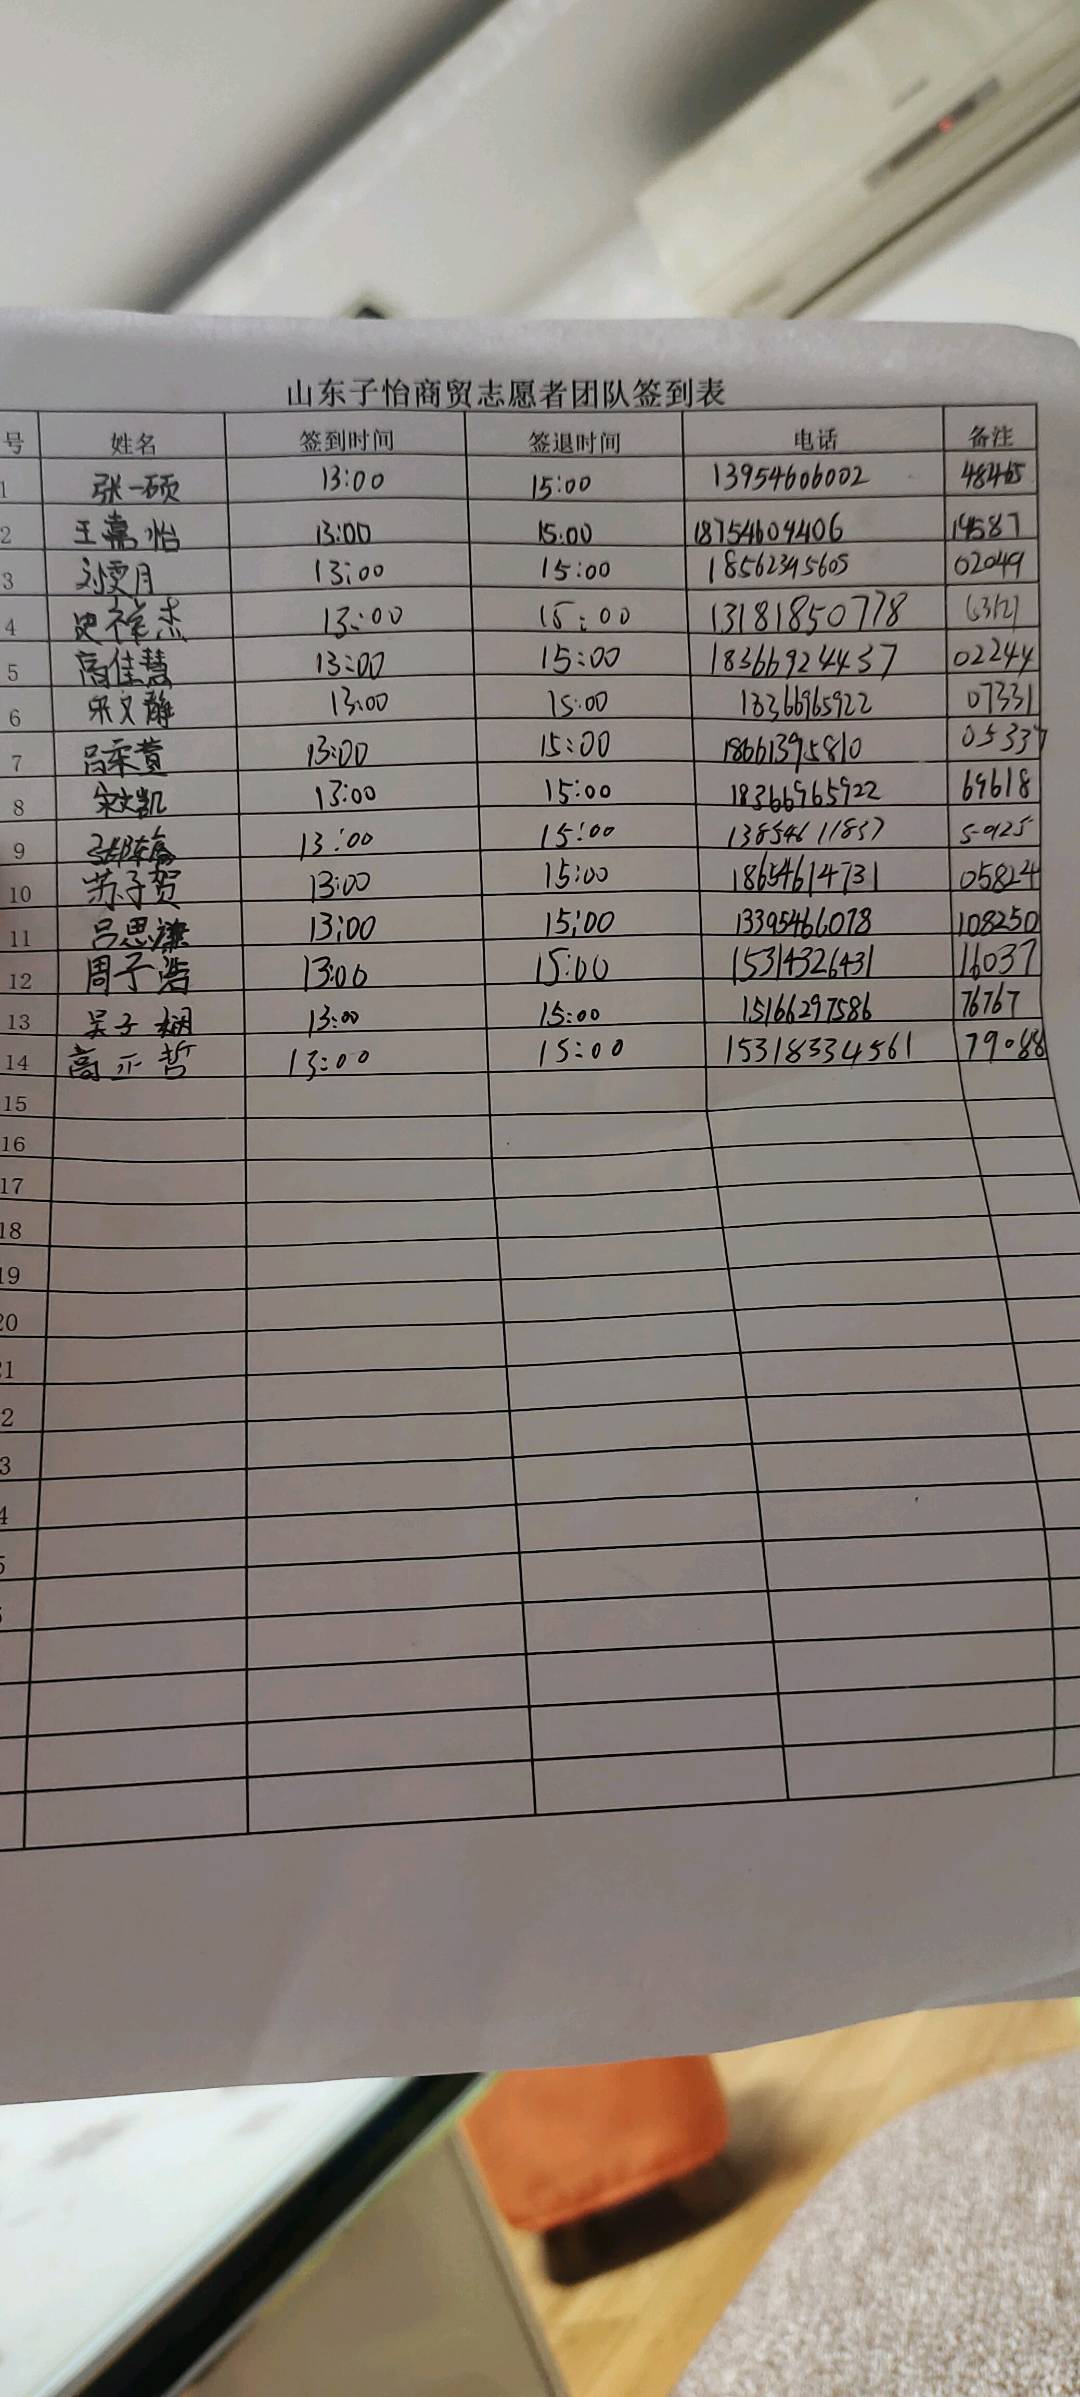 山东子怡商贸志愿者团队签到表
号 姓名 签到时间 签退时间 电话 备注
1 张一硕 13:00 15:00 13954606002 48465
2 王嘉怡 13:00 15:00 18754604406 19587
3 刘雯月 13:00 15:00 18562395605 02049
4 史祥杰 13:00 15:00 13181850778
5 高佳慧 13:00 15:00 18366924437 02244
6 宋文静 13:00 15:00 18366965922 07331
7 吕采萱 13:00 15:00 18661395810 05337
8 宋文凯 13:00 15:00 18366965922 69618
9 13:00 15:00 13854611837
10 苏子贺 13:00 15:00 18654614731 05824
11 吕思谦 13:00 15:00 13395466078 108250
12 周子浩 13:00 15:00 15314326431 16037
13 吴子娴 13:00 15:00 15166297586 76767
14 高正哲 13:00 15:00 15318334561 79088
15
16
17
18
19
20
21
2
3
4
5